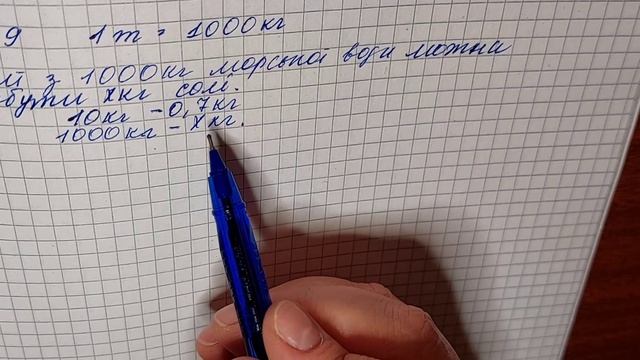 9 1 т = 1000 кг
й з 1000 кг морської води можна
бути х кг солі.
10 кг - 0,7 кг
1000 кг - х кг.